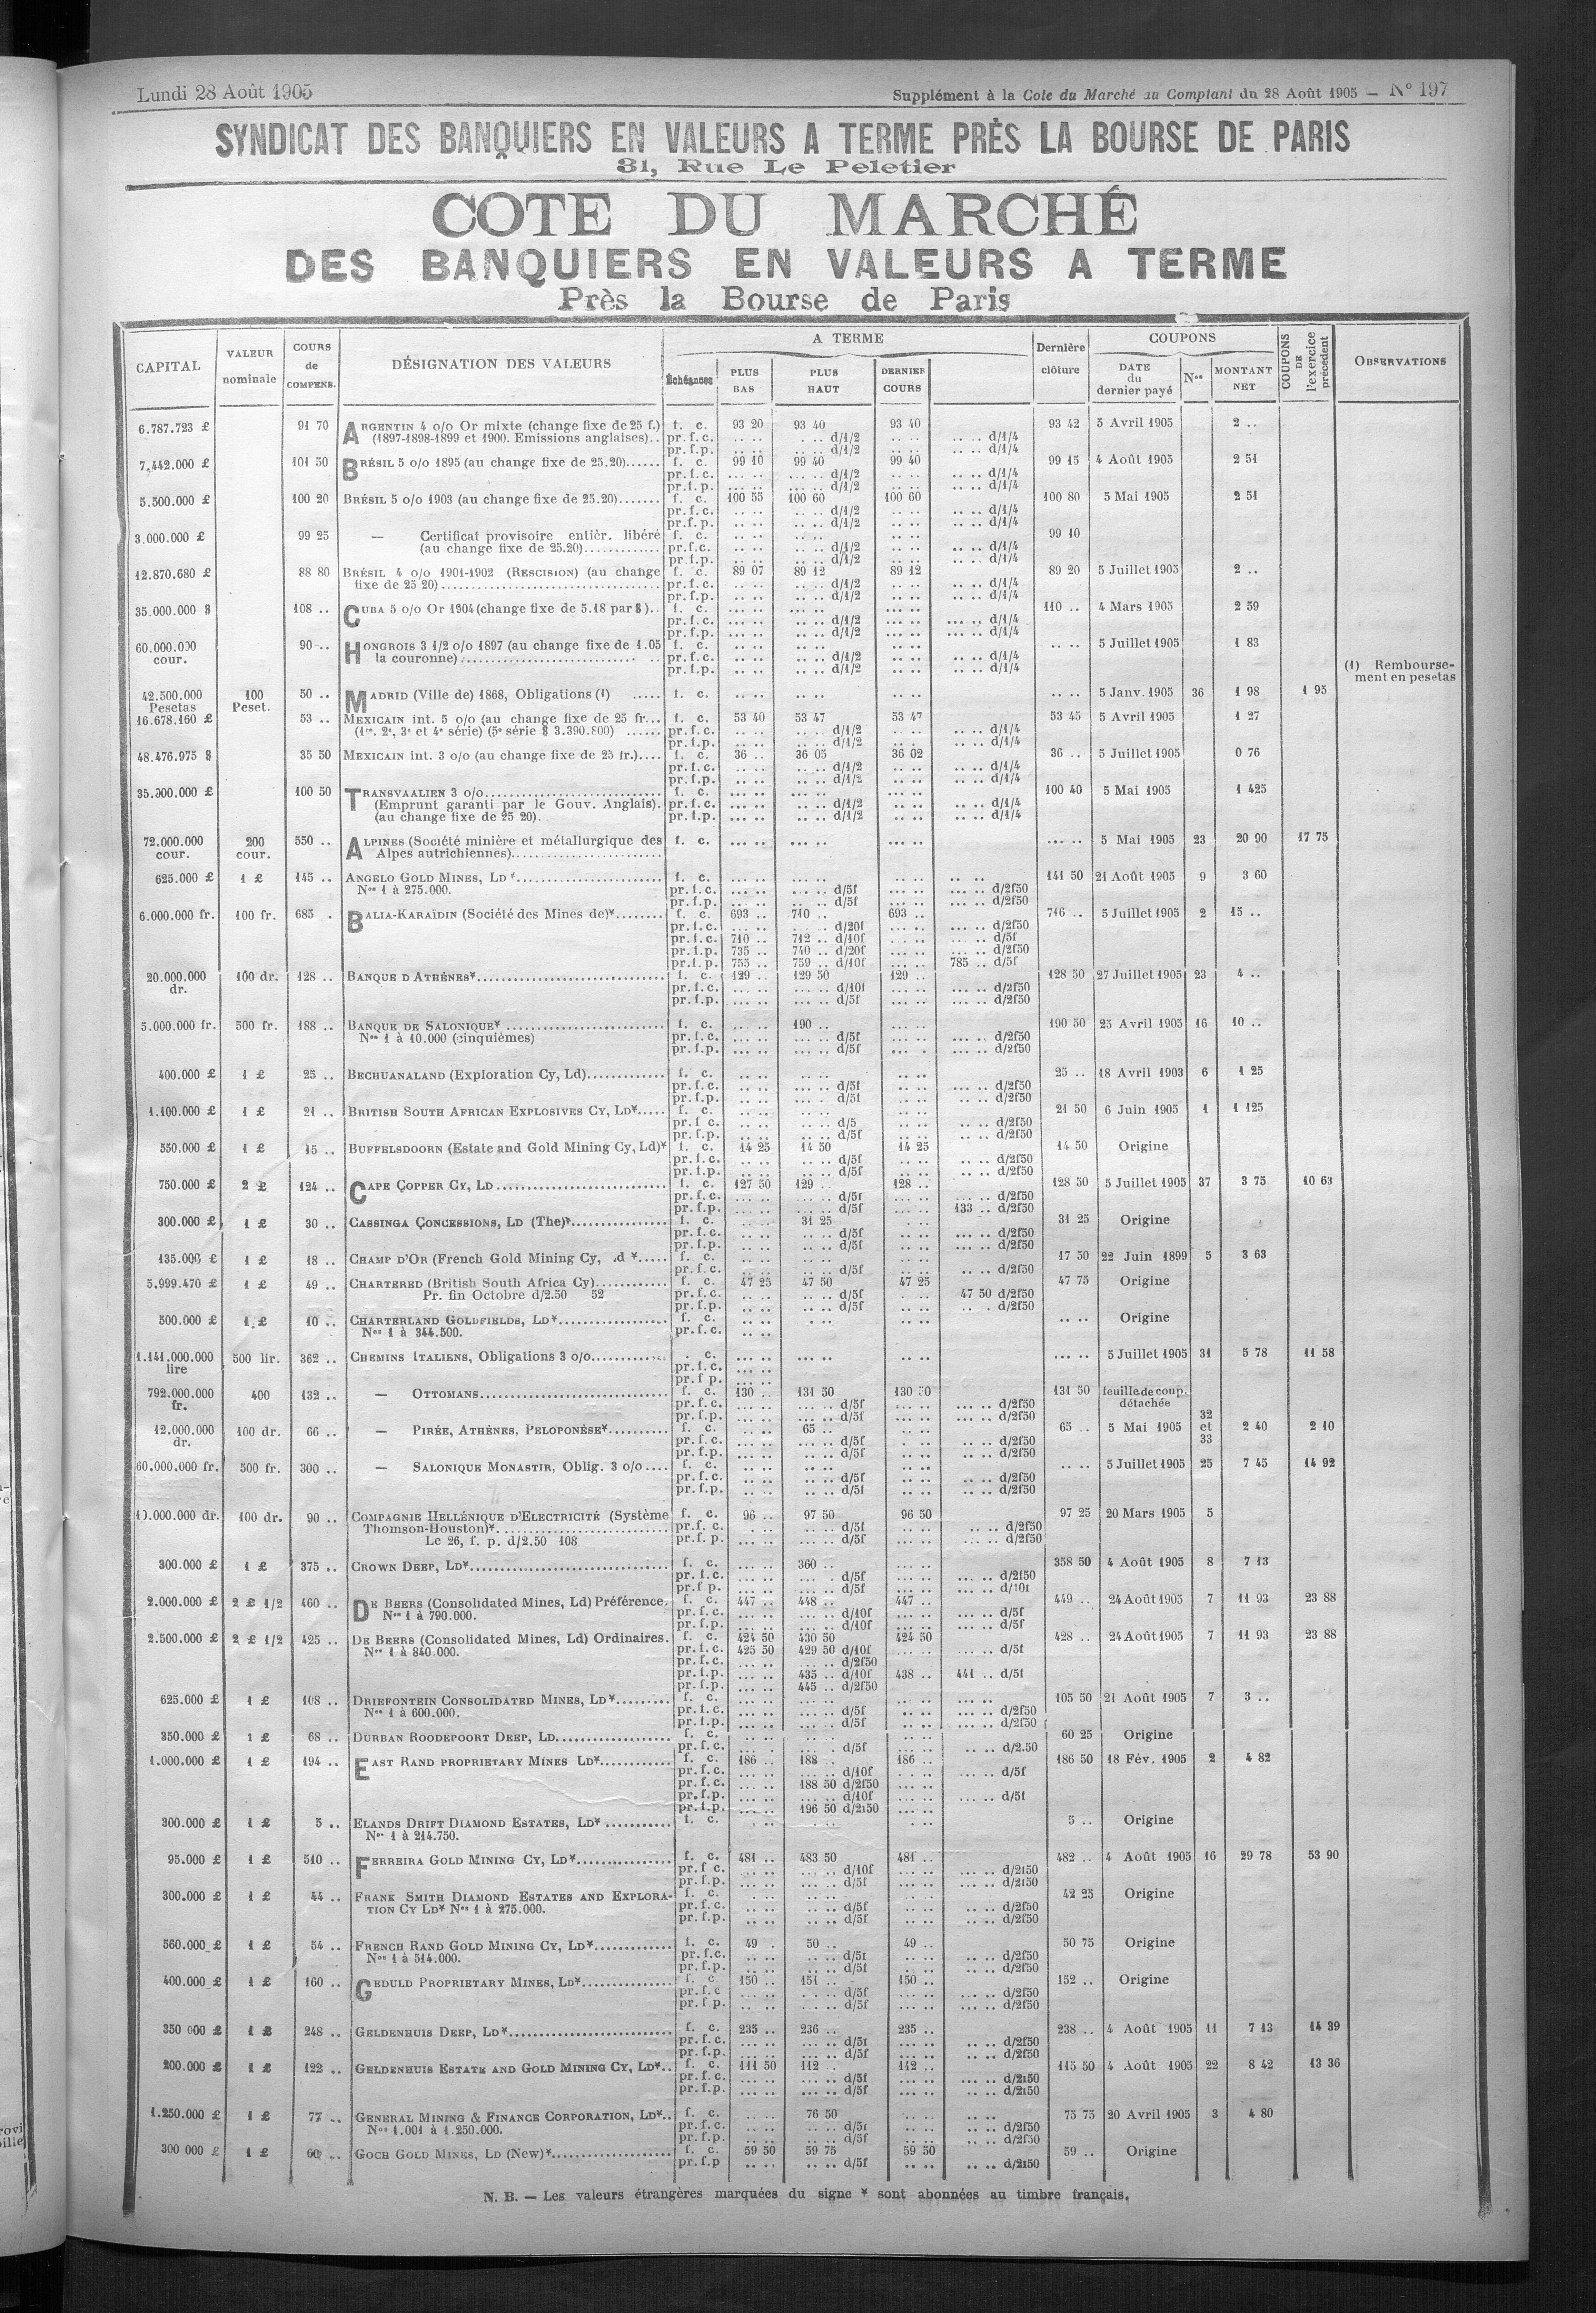 Lundi 28 Août 1905
Supplément à la Cote du Marché au Comptant du 28 Août 1905 — N° 197
SYNDICAT DES BANQUIERS EN VALEURS A TERME PRÈS LA BOURSE DE PARIS
31, Rue Le Peletier
COTE DU MARCHÉ
DES BANQUIERS EN VALEURS A TERME
Près la Bourse de Paris
CAPITAL VALEUR nominale COURS de COMPENS. DÉSIGNATION DES VALEURS A TERME Échéances PLUS BAS PLUS HAUT DERNIER COURS Dernière clôture COUPONS DATE du dernier payé Nos MONTANT NET COUPONS DE l'exercice précédent OBSERVATIONS
6.787.723 £ 91 70 ARGENTIN 4 o/o Or mixte (change fixe de 25 f.) f. c. 93 20 93 40 93 40 93 42 5 Avril 1905 2 ..
(1897-1898-1899 et 1900. Emissions anglaises).. pr. f. c. .. .. d/1/2 .. .. d/1/4
pr. f. p. .. .. d/1/2 .. .. d/1/4
7.442.000 £ 101 50 BRÉSIL 5 o/o 1895 (au change fixe de 25.20)...... f. c. 99 10 99 40 99 40 99 15 4 Août 1905 2 51
pr. f. c. d/1/2 d/1/4
pr. f. p. d/1/2 d/1/4
5.500.000 £ 100 20 BRÉSIL 5 o/o 1903 (au change fixe de 25.20)....... f. c. 100 55 100 60 100 60 100 80 5 Mai 1905 2 51
pr. f. c. d/1/2 d/1/4
pr. f. p. d/1/2 d/1/4
3.000.000 £ 99 25 — Certificat provisoire entièr. libéré f. c. 99 10
(au change fixe de 25.20)............. pr. f. c. d/1/2 d/1/4
pr. f. p. d/1/2 d/1/4
12.870.680 £ 88 80 BRÉSIL 4 o/o 1901-1902 (RESCISION) (au change f. c. 89 07 89 12 89 12 89 20 5 Juillet 1905 2 ..
fixe de 25 20)........ pr. f. c. d/1/2 d/1/4
pr. f. p. d/1/2 d/1/4
35.000.000 $ 108 .. CUBA 5 o/o Or 1904 (change fixe de 5.18 par $).. f. c. 110 .. 4 Mars 1905 2 59
pr. f. c. d/1/2 d/1/4
pr. f. p. d/1/2 d/1/4
60.000.000 cour. 90 .. HONGROIS 3 1/2 o/o 1897 (au change fixe de 1.05 f. c. 5 Juillet 1905 1 83
la couronne)........ pr. f. c. d/1/2 d/1/4
pr. f. p. d/1/2 d/1/4
(1) Remboursement en pesetas
42.500.000 Pesetas 100 Peset. 50 .. MADRID (Ville de) 1868, Obligations (1) ..... f. c. 5 Janv. 1905 36 1 98 1 95
16.678.160 £ 53 .. MEXICAIN int. 5 o/o (au change fixe de 25 fr... f. c. 53 40 53 47 53 47 53 45 5 Avril 1905 1 27
(1re, 2e, 3e et 4e série) (5e série $ 3.390.800) ...... pr. f. c. d/1/2 d/1/4
pr. f. p. d/1/2 d/1/4
48.476.975 $ 35 50 MEXICAIN int. 3 o/o (au change fixe de 25 fr.).... f. c. 36 .. 36 05 36 02 36 .. 5 Juillet 1905 0 76
pr. f. c. d/1/2 d/1/4
pr. f. p. d/1/2 d/1/4
35.000.000 £ 100 50 TRANSVAALIEN 3 o/o........ f. c. 100 40 5 Mai 1905 1 425
(Emprunt garanti par le Gouv. Anglais). pr. f. c. d/1/2 d/1/4
(au change fixe de 25 20). pr. f. p. d/1/2 d/1/4
72.000.000 cour. 200 cour. 550 .. ALPINES (Société minière et métallurgique des f. c. 5 Mai 1905 23 20 90 17 75
Alpes autrichiennes)........
625.000 £ 1 £ 145 .. ANGELO GOLD MINES, LD*........ f. c. 141 50 21 Août 1905 9 3 60
Nos 1 à 275.000. pr. f. c. d/5f d/2f50
pr. f. p. d/5f d/2f50
6.000.000 fr. 100 fr. 685 . BALIA-KARAÏDIN (Société des Mines de)*........ f. c. 693 .. 710 .. 693 .. 716 .. 5 Juillet 1905 2 15 ..
pr. f. c. d/20f d/2f50
pr. f. c. 710 .. 712 .. d/10f d/5f
pr. f. p. 735 .. 740 .. d/20f d/2f50
pr. f. p. 755 .. 759 .. d/10f 785 .. d/5f
20.000.000 dr. 100 dr. 128 .. BANQUE D'ATHÈNES*........ f. c. 129 .. 129 50 129 .. 128 50 27 Juillet 1905 23 4 ..
pr. f. c. d/10f d/2f50
pr. f. p. d/5f d/2f50
5.000.000 fr. 500 fr. 188 .. BANQUE DE SALONIQUE* ........ f. c. 190 .. 190 50 25 Avril 1905 16 10 ..
Nos 1 à 10.000 (cinquièmes) pr. f. c. d/5f d/2f50
pr. f. p. d/5f d/2f50
400.000 £ 1 £ 25 .. BECHUANALAND (Exploration Cy, Ld)............. f. c. 25 .. 18 Avril 1903 6 1 25
pr. f. c. d/5f d/2f50
pr. f. p. d/5f d/2f50
1.100.000 £ 1 £ 21 .. BRITISH SOUTH AFRICAN EXPLOSIVES CY, LD*..... f. c. 21 50 6 Juin 1905 1 1 125
pr. f. c. d/5 d/2f50
pr. f. p. d/5f d/2f50
550.000 £ 1 £ 15 .. BUFFELSDOORN (Estate and Gold Mining Cy, Ld)* f. c. 14 25 14 50 14 25 14 50 Origine
pr. f. c. d/5f d/2f50
pr. f. p. d/5f d/2f50
750.000 £ 2 £ 124 .. CAPE COPPER CY, LD........ f. c. 127 50 129 .. 128 .. 128 50 5 Juillet 1905 37 3 75 10 63
pr. f. c. d/5f d/2f50
pr. f. p. d/5f 133 .. d/2f50
300.000 £ 1 £ 30 .. CASSINGA CONCESSIONS, LD (The)*........ f. c. 31 25 31 25 Origine
pr. f. c. d/5f d/2f50
pr. f. p. d/5f d/2f50
135.000 £ 1 £ 18 .. CHAMP D'OR (French Gold Mining Cy, .d *..... f. c. 17 50 22 Juin 1899 5 3 63
pr. f. c. d/5f d/2f50
5.999.470 £ 1 £ 49 .. CHARTERED (British South Africa Cy)............ f. c. 47 25 47 50 47 25 47 75 Origine
Pr. fin Octobre d/2.50 52 pr. f. c. d/5f 47 50 d/2f50
pr. f. p. d/5f d/2f50
500.000 £ 1 £ 10 .. CHARTERLAND GOLDFIELDS, LD*........ f. c. Origine
Nos 1 à 344.500. pr. f. c.
1.141.000.000 lire 500 lir. 362 .. CHEMINS ITALIENS, Obligations 3 o/o............ . c. 5 Juillet 1905 31 5 78 11 58
pr. f. c.
pr. f. p.
792.000.000 fr. 400 132 .. — OTTOMANS........ f. c. 130 .. 131 50 130 50 131 50 feuille de coup. détachée
pr. f. c. d/5f d/2f50
pr. f. p. d/5f d/2f50
12.000.000 dr. 100 dr. 66 .. — PIRÉE, ATHÈNES, PELOPONÈSE*.......... f. c. 65 .. 65 .. 5 Mai 1905 32 et 33 2 40 2 10
pr. f. c. d/5f d/2f50
pr. f. p. d/5f d/2f50
60.000.000 fr. 500 fr. 300 .. — SALONIQUE MONASTIR, Oblig. 3 o/o.... f. c. 5 Juillet 1905 25 7 45 14 92
pr. f. c. d/5f d/2f50
pr. f. p. d/5f d/2f50
10.000.000 dr. 100 dr. 90 .. COMPAGNIE HELLÉNIQUE D'ELECTRICITÉ (Système f. c. 96 .. 97 50 96 50 97 25 20 Mars 1905 5
Thomson-Houston)*........ pr. f. c. d/5f d/2f50
Le 26, f. p. d/2.50 108 pr. f. p. d/5f d/2f50
300.000 £ 1 £ 375 .. CROWN DEEP, LD*........ f. c. 360 .. 358 50 4 Août 1905 8 7 13
pr. f. c. d/5f d/2f50
pr. f. p. d/5f d/10f
2.000.000 £ 2 £ 1/2 460 .. DE BEERS (Consolidated Mines, Ld) Préférence. f. c. 447 .. 448 .. 447 .. 449 .. 24 Août 1905 7 11 93 23 88
Nos 1 à 790.000. pr. f. c. d/10f d/5f
pr. f. p. d/10f d/5f
2.500.000 £ 2 £ 1/2 425 .. DE BEERS (Consolidated Mines, Ld) Ordinaires. f. c. 424 50 430 50 424 50 428 .. 24 Août 1905 7 11 93 23 88
Nos 1 à 840.000. pr. f. c. 425 50 429 50 d/10f d/5f
pr. f. c. d/2f50
pr. f. p. 435 .. d/10f 438 .. 441 .. d/5f
pr. f. p. 445 .. d/2f50
625.000 £ 1 £ 108 .. DRIEFONTEIN CONSOLIDATED MINES, LD*......... f. c. 105 50 21 Août 1905 7 3 ..
Nos 1 à 600.000. pr. f. c. d/5f d/2f50
pr. f. p. d/5f d/2f50
350.000 £ 1 £ 68 .. DURBAN ROODEPOORT DEEP, LD........ f. c. 60 25 Origine
pr. f. c. d/5f d/2.50
1.000.000 £ 1 £ 194 .. EAST RAND PROPRIETARY MINES LD*............ f. c. 186 .. 188 .. 186 .. 186 50 18 Fév. 1905 2 4 82
pr. f. c. d/10f d/5f
pr. f. c. 188 50 d/2f50
pr. f. p. d/10f d/5f
pr. f. p. 196 50 d/2f50
300.000 £ 1 £ 5 .. ELANDS DRIFT DIAMOND ESTATES, LD* ........... f. c. 5 .. Origine
Nos 1 à 214.750.
95.000 £ 1 £ 510 .. FERREIRA GOLD MINING CY, LD*................ f. c. 481 .. 483 50 481 .. 482 .. 4 Août 1905 16 29 78 53 90
pr. f. c. d/10f d/2f50
pr. f. p. d/5f d/2f50
300.000 £ 1 £ 44 .. FRANK SMITH DIAMOND ESTATES AND EXPLORA- f. c. 42 25 Origine
TION CY LD* Nos 1 à 275.000. pr. f. c. d/5f d/2f50
pr. f. p. d/5f d/2f50
560.000 £ 1 £ 54 .. FRENCH RAND GOLD MINING CY, LD*............. f. c. 49 . 50 .. 49 .. 50 75 Origine
Nos 1 à 514.000. pr. f. c. d/5f d/2f50
pr. f. p. d/5f d/2f50
400.000 £ 1 £ 160 .. GEDULD PROPRIETARY MINES, LD*............... f. c. 150 .. 151 .. 150 .. 152 .. Origine
pr. f. c. d/5f d/2f50
pr. f. p. d/5f d/2f50
350 000 £ 1 £ 248 .. GELDENHUIS DEEP, LD*........ f. c. 235 .. 236 .. 235 .. 238 .. 4 Août 1905 11 7 13 14 39
pr. f. c. d/5f d/2f50
pr. f. p. d/5f d/2f50
200.000 £ 1 £ 122 .. GELDENHUIS ESTATE AND GOLD MINING CY, LD*.. f. c. 111 50 112 . 112 .. 115 50 4 Août 1905 22 8 42 13 36
pr. f. c. d/5f d/2f50
pr. f. p. d/5f d/2f50
1.250.000 £ 1 £ 77 .. GENERAL MINING & FINANCE CORPORATION, LD*.. f. c. 76 50 75 75 20 Avril 1905 3 4 80
Nos 1.001 à 1.250.000. pr. f. c. d/5f d/2f50
pr. f. p. d/5f d/2f50
300 000 £ 1 £ 60 .. GOCH GOLD MINES, LD (New)*................... f. c. 59 50 59 75 59 50 59 .. Origine
pr. f. p d/5f d/2f50
N. B. — Les valeurs étrangères marquées du signe * sont abonnées au timbre français.